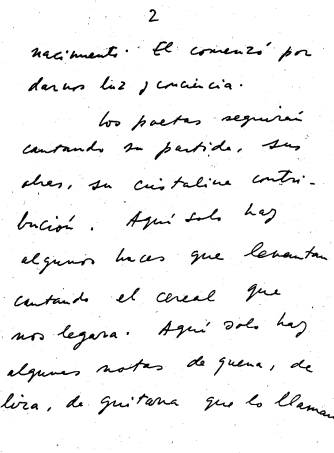 2
nacimiento. El comenzó por
darnos luz y conciencia.
los poetas seguirán
cantando su partida, sus
obras, su cristalina contri-
bución. Aquí solo hay
algunos haces que levantan
cantando el cereal que
nos legara. Aquí solo hay
algunas notas de quena, de
lira, de guitarra que lo llaman